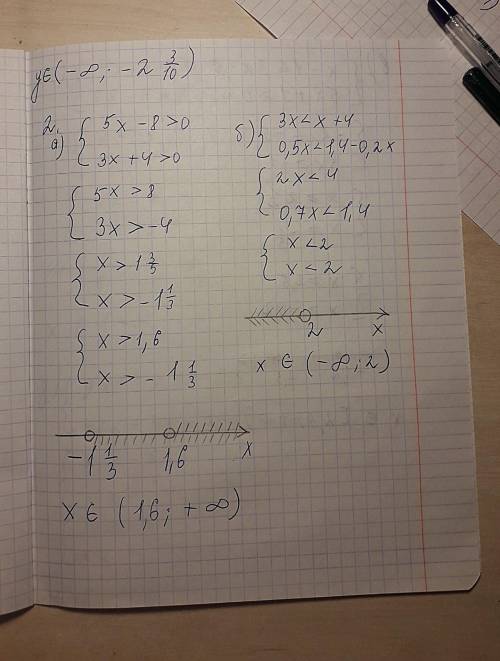 y∈(-∞; -2 3/10)
2.
а) { 5x - 8 > 0
3x + 4 > 0
{ 5x > 8
3x > -4
{ x > 1 3/5
x > -1 1/3
{ x > 1,6
x > -1 1/3
-1 1/3 1,6 x
x ∈ (1,6; +∞)
б) { 3x < x + 4
0,5x < 1,4 - 0,2x
{ 2x < 4
0,7x < 1,4
{ x < 2
x < 2
2 x
x ∈ (-∞; 2)